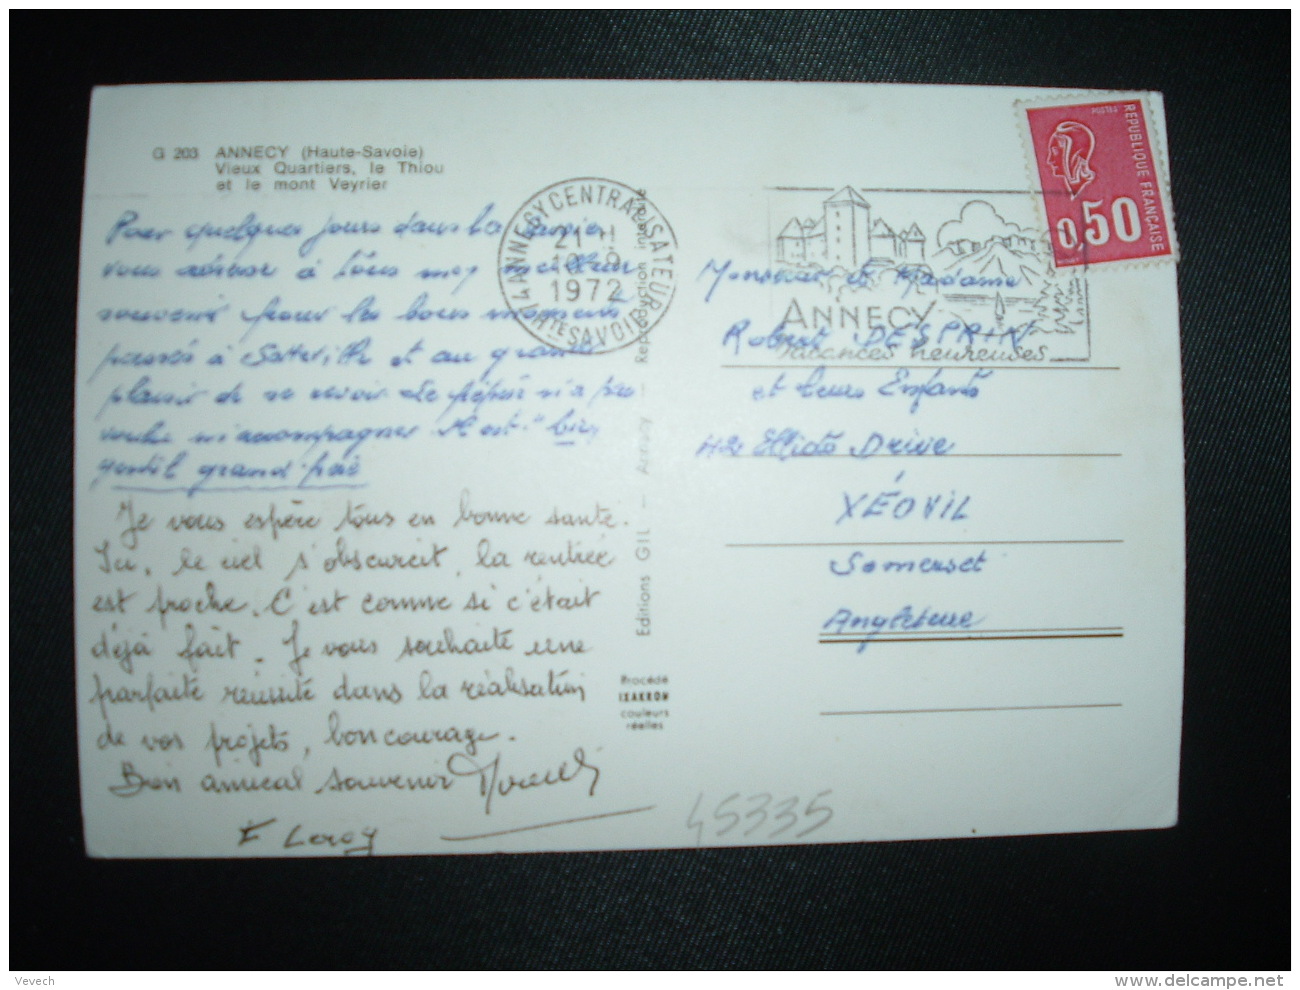 G 203 ANNECY (Haute-Savoie)
Vieux Quartiers, le Thiou
et le mont Veyrier
Pour quelques jours dans la Savoie
vous adresse à tous mes meilleurs
souvenirs pour les bons moments
passés à Sotteville et au grand
plaisir de se revoir. Le pépère n'a pas
voulu m'accompagner. Il est "bien
gentil grand-père
Je vous espère tous en bonne santé.
Ici, le ciel s'obscurcit, la rentrée
est proche. C'est comme si c'était
déjà fait. Je vous souhaite une
parfaite réussite dans la réalisation
de vos projets, bon courage.
Bien amical souvenir
F Leroy
Editions GIL — Annecy — Reproduction interdite
Procédé
IXAKROM
couleurs
réelles
74 ANNECY CENTRALISATEUR
21 H
1972
HTE SAVOIE
ANNECY
Vacances heureuses
POSTES
REPUBLIQUE FRANÇAISE
0,50
Monsieur et Madame
Robert DESPRIN
et leurs Enfants
42 Elliots Drive
YÉOVIL
Somerset
Angleterre
45335
Vevech
www.delcampe.net